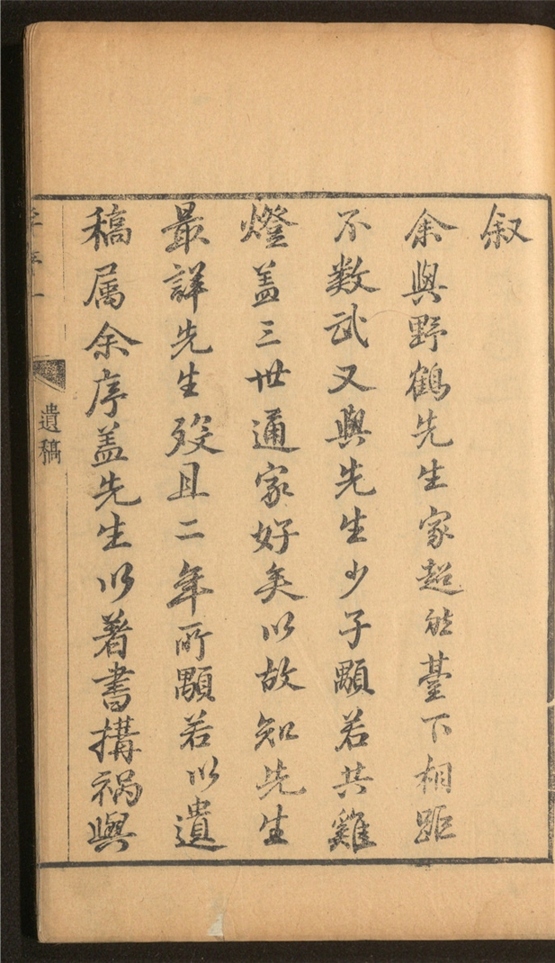 叙
余與野鶴先生家超然臺下相距
不數武又與先生少子顒若共雞
燈盖三世通家好矣以故知先生
最詳先生歿且二年所顒若以遺
稿属余序盖先生以著書搆禍與
遺稿